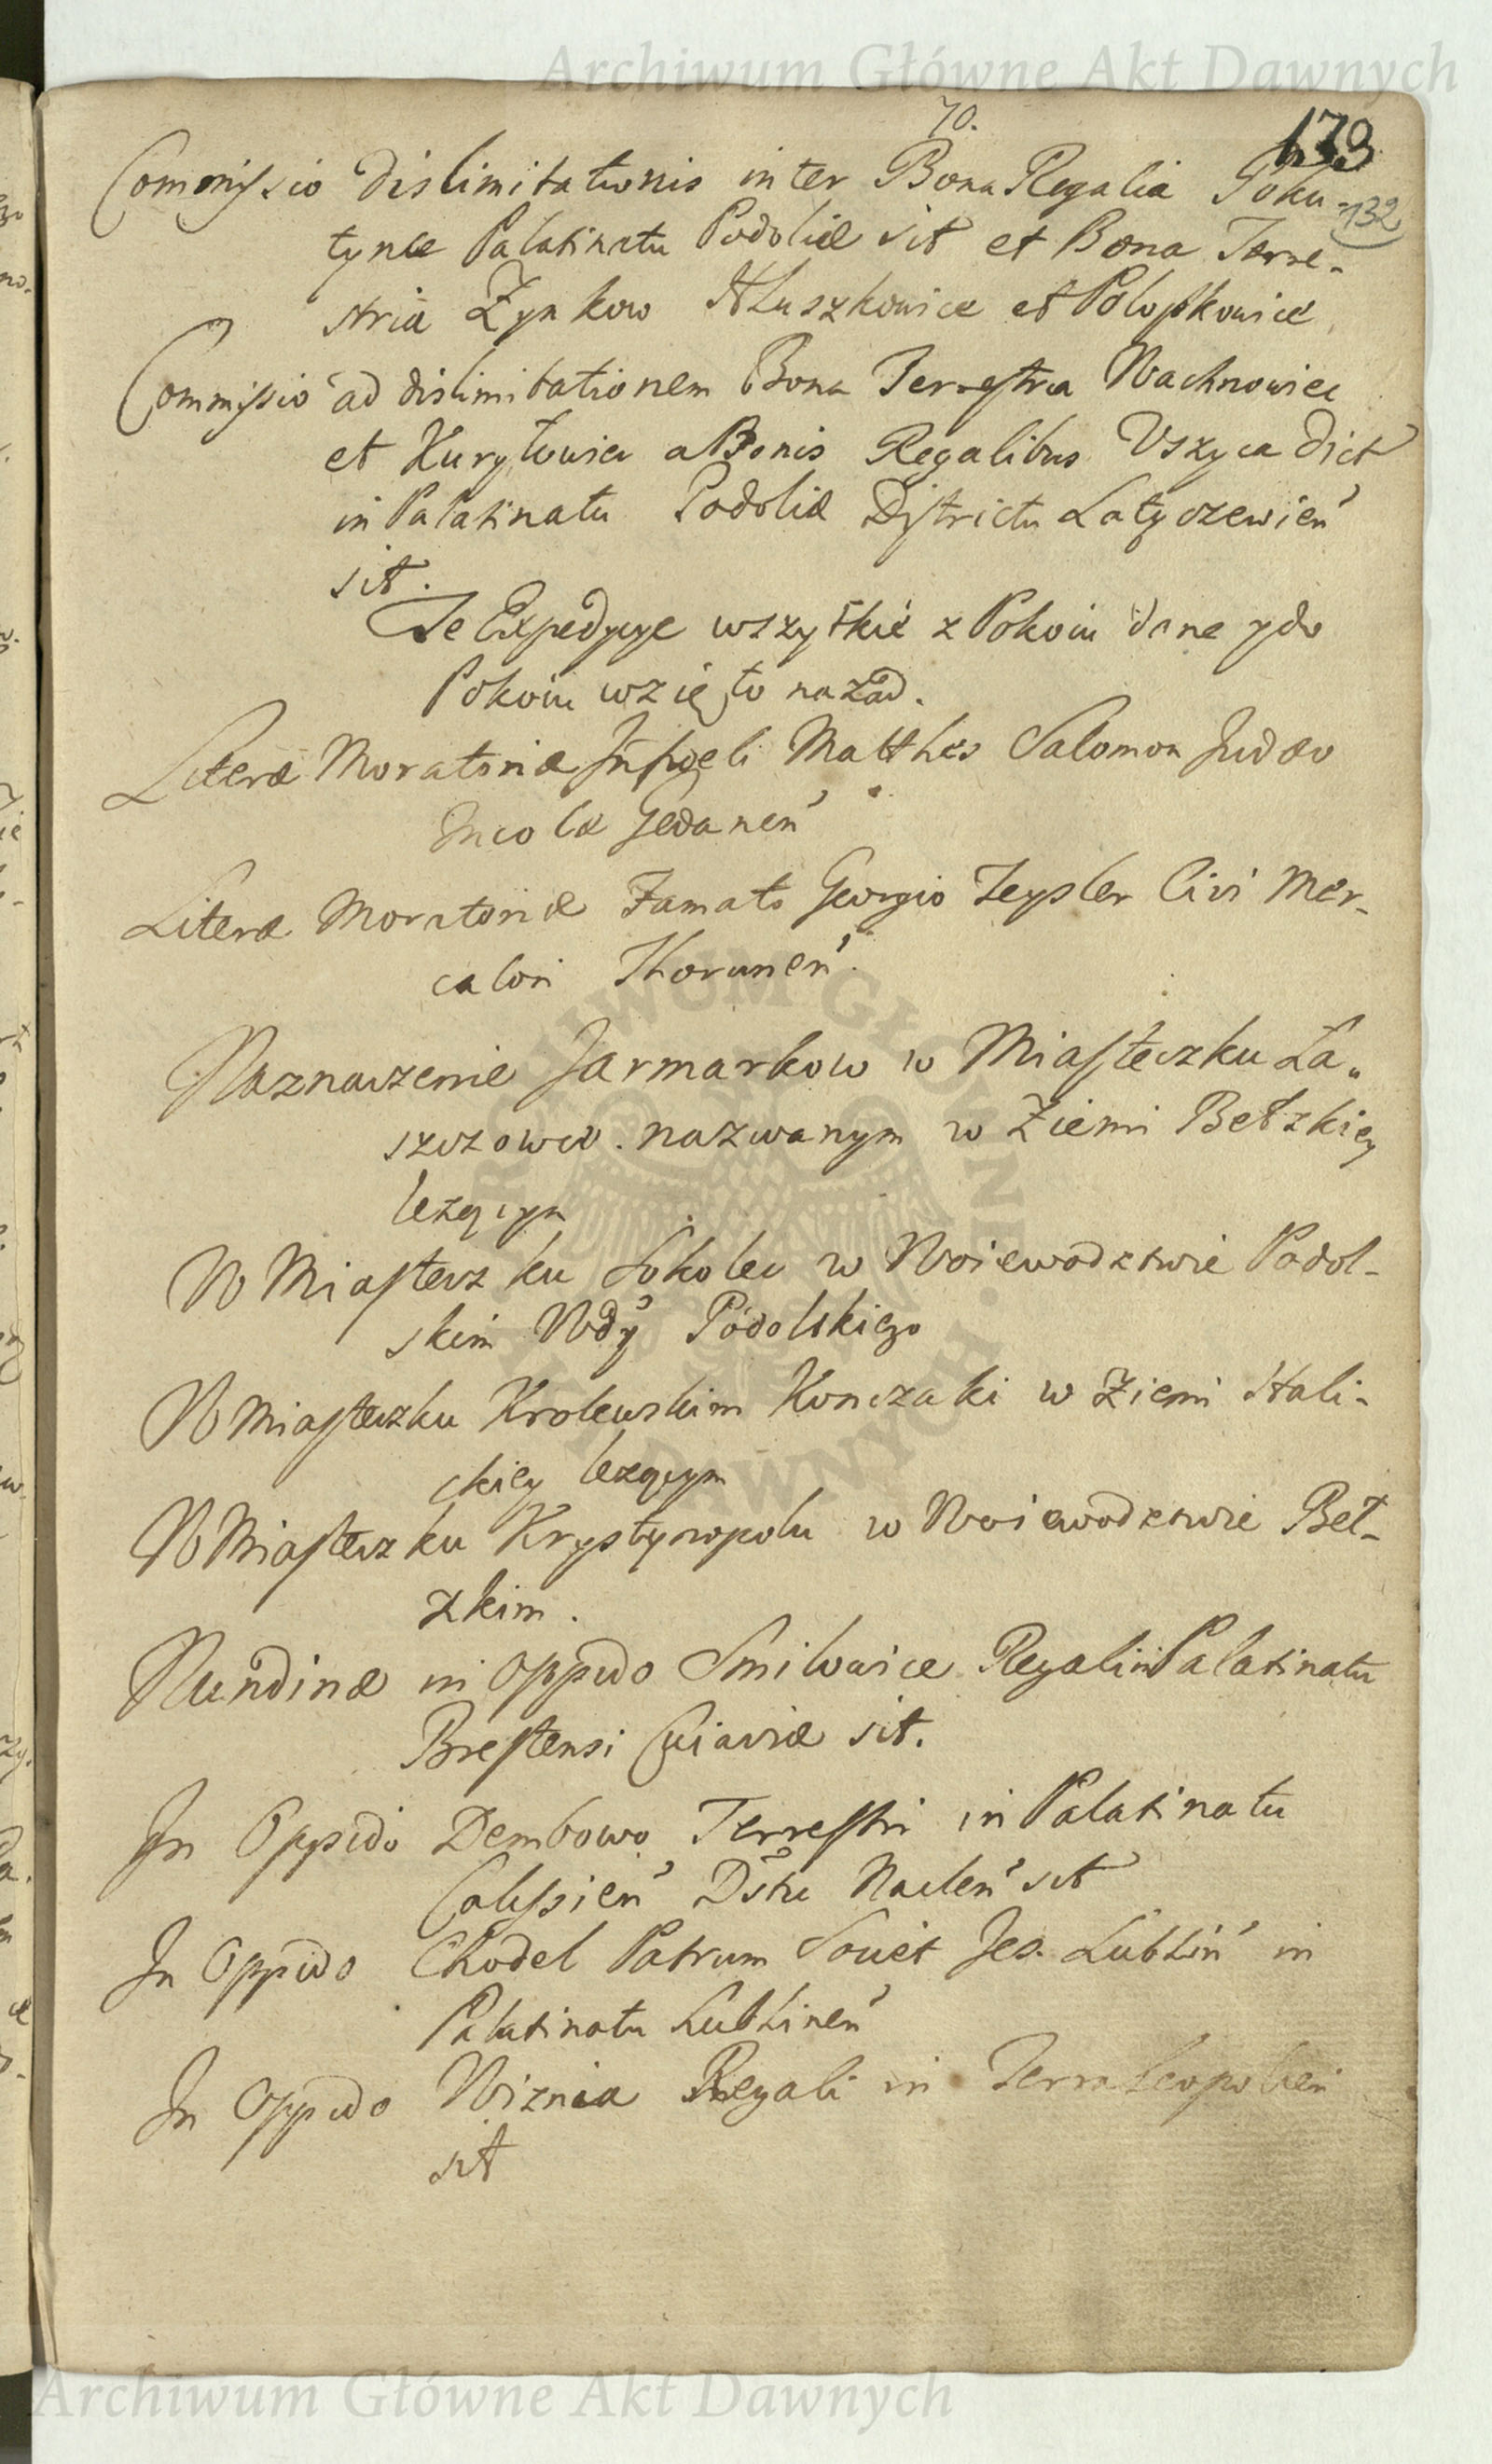 Archiwum Główne Akt Dawnych
70.
173
132
Commissio dislimitationis inter Bona Regalia Poku-
tynce Palatinatu Podoliæ sit et Bona Terre-
stria Zynkow Hluszkowice et
Commissio ad dislimitationem Bona Terrestria Wachnowiec
et Kuryłowiec a Bonis Regalibus Uszyca dict
in Palatinatu Podoliæ Districtu Latyczewień
sit.
Te Expedycye wszytkie z Pokoiu dane y do
Pokoiu wzięto nazad.
Literæ Moratoriæ Infideli Matthæo Salomon Judæo
Incolæ Gedanen
Literæ Moratoriæ Famato Georgio Zeysler Civi Mer-
catori Thorunen.
Naznaczenie Jarmarkow w Miasteczku Ła„
szczowce nazwanym w Ziemi Bełzkiey
leżącym
W Miasteczku Sokolec w Woiewodztwie Podol-
skim Wdy Podolskiego
W Miasteczku Krolewskim Konczaki w Ziemi Hali-
ckiey leżącym
W Miasteczku Krystynopolu w Woiewodztwie Beł-
zkim.
Nundinæ in Oppido Smilowice Regali in Palatinatu
Brestensi Cuiaviæ sit.
In Oppido Dembowo Terrestri in Palatinatu
Calissien Dstu Naclen sit
In Oppido Chodel Patrum Societ Jes. Lublin in
Palatinatu Lublinen
In Oppido Wiznia Regali in Terra Leopolien
sit
ARCHIWUM GŁÓWNE AKT DAWNYCH
Archiwum Główne Akt Dawnych